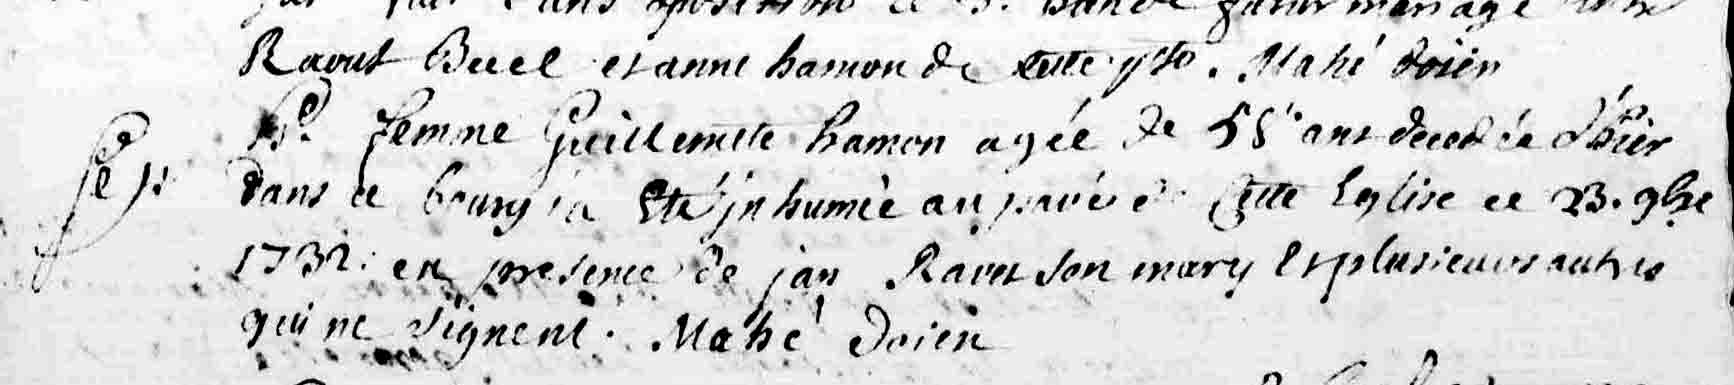 par fait sans oposition ce 3. bande futur mariage entre
Raoul Beuel et anne hamon de cette psse. Mahé doien
Hble femme Guillemette hamon agée de 55 ans decedée d'hier
Se):
dans ce bourg a eté jnhumée au pavé de Cette Eglise ce 23. 9bre
1732. en presence de jan Ravet son mary et plusieurs autres
qui ne signent. Mahé doien